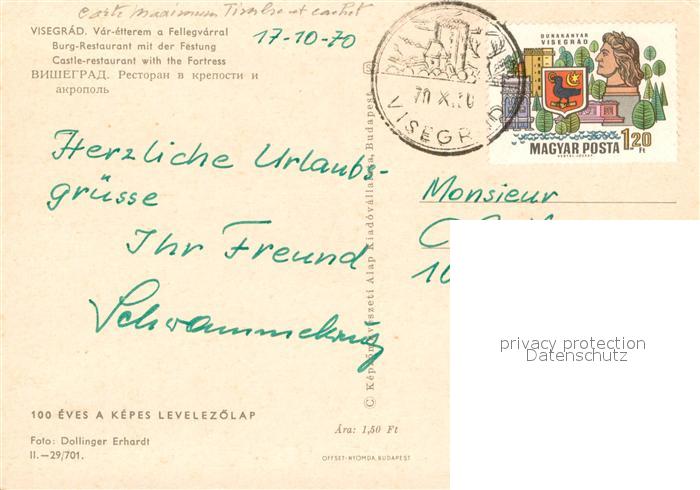 Carte maximum Timbre et cachet
VISEGRÁD. Vár-étterem a Fellegvárral
Burg-Restaurant mit der Festung
Castle-restaurant with the Fortress
ВИШЕГРАД. Ресторан в крепости и
акрополь
17-10-70
70 X.
VISEGRÁD
DUNAKANYAR
VISEGRÁD
MAGYAR POSTA 1.20 Ft
Herzliche Urlaubs-
grüsse
Ihr Freund
Monsieur
10
privacy protection
Datenschutz
© Képzőművészeti Alap Kiadóvállalata, Budapest
100 ÉVES A KÉPES LEVELEZŐLAP
Foto: Dollinger Erhardt
II.—29/701.
Ára: 1,50 Ft
OFFSET-NYOMDA, BUDAPEST